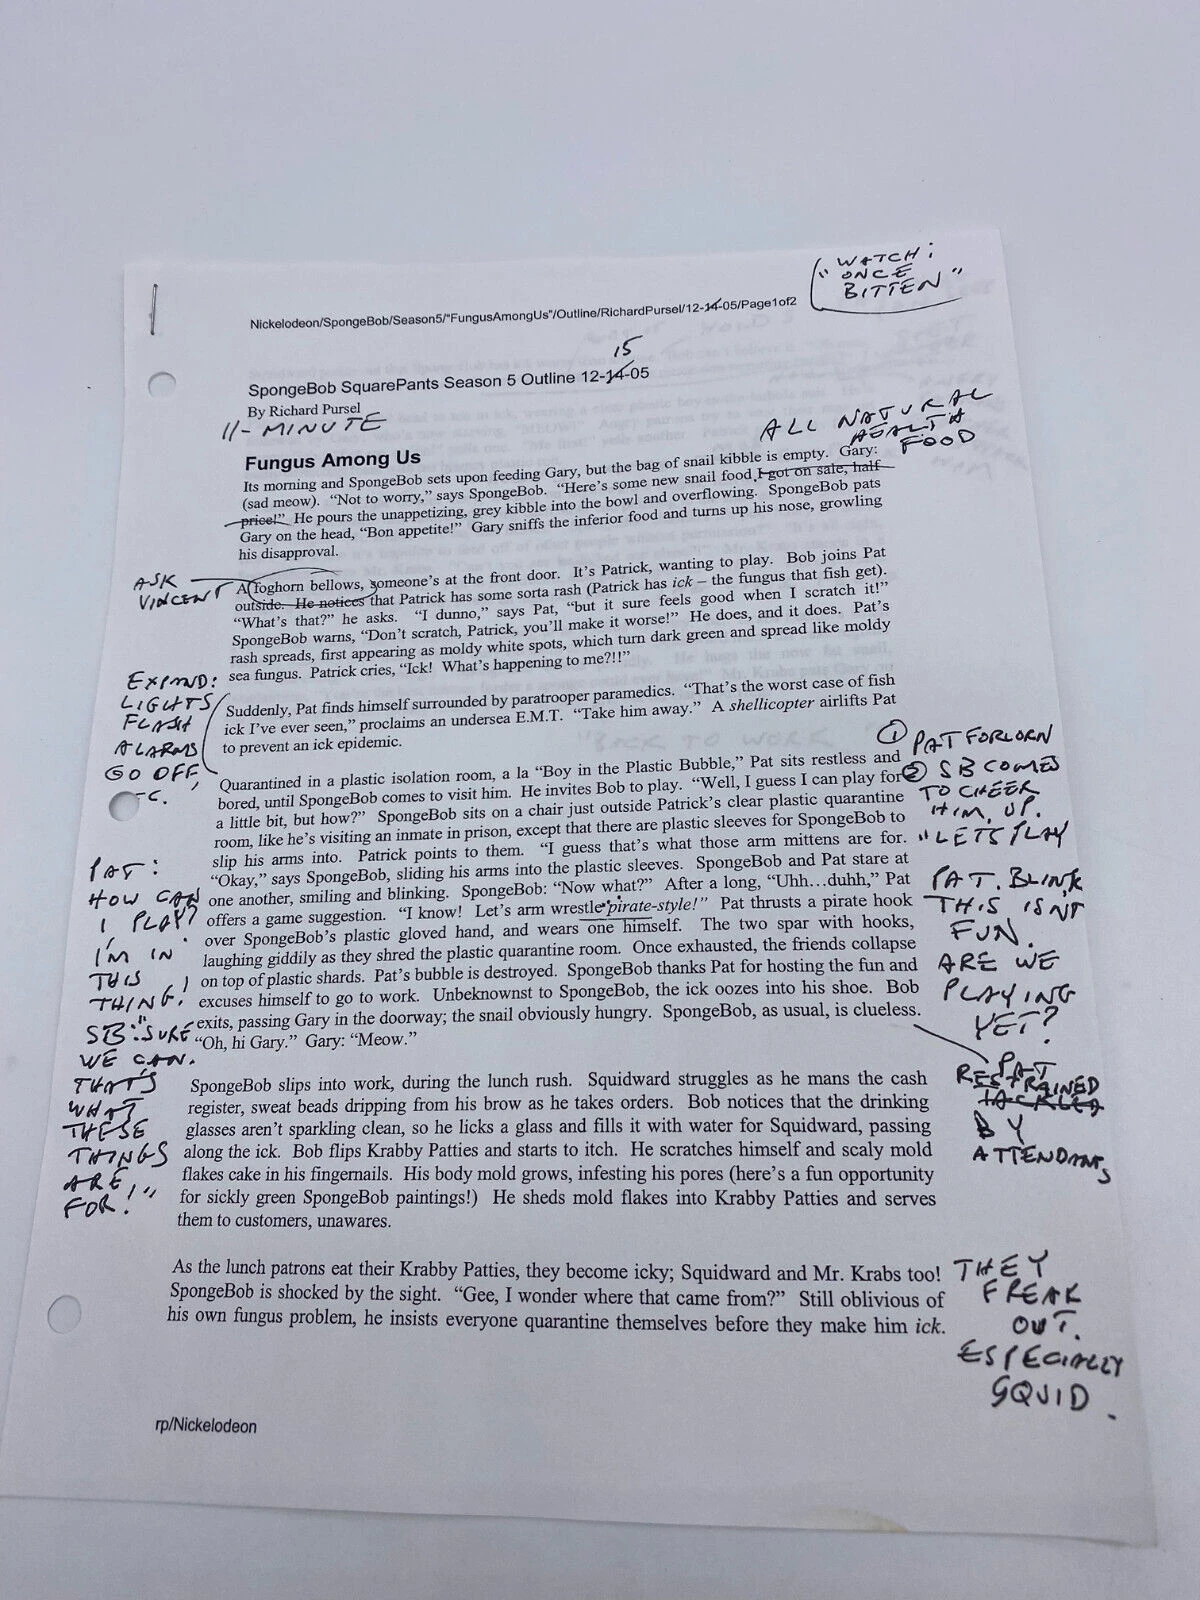 WATCH:
"ONCE
BITTEN"
Nickelodeon/SpongeBob/Season5/"FungusAmongUs"/Outline/RichardPursel/12-14-05/Page1of2
15
SpongeBob SquarePants Season 5 Outline 12-14-05
By Richard Pursel
11-MINUTE
ALL NATURAL
HEALTH
FOOD
Fungus Among Us
Its morning and SpongeBob sets upon feeding Gary, but the bag of snail kibble is empty. Gary:
(sad meow). "Not to worry," says SpongeBob. "Here's some new snail food I got on sale, half
price!" He pours the unappetizing, grey kibble into the bowl and overflowing. SpongeBob pats
Gary on the head, "Bon appetite!" Gary sniffs the inferior food and turns up his nose, growling
his disapproval.
ASK
VINCENT
A foghorn bellows, someone's at the front door. It's Patrick, wanting to play. Bob joins Pat
outside. He notices that Patrick has some sorta rash (Patrick has ick – the fungus that fish get).
"What's that?" he asks. "I dunno," says Pat, "but it sure feels good when I scratch it!"
SpongeBob warns, "Don't scratch, Patrick, you'll make it worse!" He does, and it does. Pat's
rash spreads, first appearing as moldy white spots, which turn dark green and spread like moldy
sea fungus. Patrick cries, "Ick! What's happening to me?!!"
EXPAND:
LIGHTS
FLASH
ALARMS
GO OFF,
TC.
Suddenly, Pat finds himself surrounded by paratrooper paramedics. "That's the worst case of fish
ick I've ever seen," proclaims an undersea E.M.T. "Take him away." A shellicopter airlifts Pat
to prevent an ick epidemic.
Quarantined in a plastic isolation room, a la "Boy in the Plastic Bubble," Pat sits restless and
bored, until SpongeBob comes to visit him. He invites Bob to play. "Well, I guess I can play for
a little bit, but how?" SpongeBob sits on a chair just outside Patrick's clear plastic quarantine
room, like he's visiting an inmate in prison, except that there are plastic sleeves for SpongeBob to
slip his arms into. Patrick points to them. "I guess that's what those arm mittens are for.
"Okay," says SpongeBob, sliding his arms into the plastic sleeves. SpongeBob and Pat stare at
one another, smiling and blinking. SpongeBob: "Now what?" After a long, "Uhh…duhh," Pat
offers a game suggestion. "I know! Let's arm wrestle pirate-style!" Pat thrusts a pirate hook
over SpongeBob's plastic gloved hand, and wears one himself. The two spar with hooks,
laughing giddily as they shred the plastic quarantine room. Once exhausted, the friends collapse
on top of plastic shards. Pat's bubble is destroyed. SpongeBob thanks Pat for hosting the fun and
excuses himself to go to work. Unbeknownst to SpongeBob, the ick oozes into his shoe. Bob
exits, passing Gary in the doorway; the snail obviously hungry. SpongeBob, as usual, is clueless.
"Oh, hi Gary." Gary: "Meow."
PAT:
HOW CAN
I PLAY?
I'M IN
THIS
THING!
SB: "SURE
WE CAN.
THAT'S
WHAT
THESE
THINGS
ARE
FOR!"
1 PAT FORLORN
2 SB COMES
TO CHEER
HIM UP.
"LETS PLAY
PAT. BLINK
THIS ISNT
FUN.
ARE WE
PLAYING
YET?
PAT
RESTRAINED
TACKLED
BY
ATTENDANTS
SpongeBob slips into work, during the lunch rush. Squidward struggles as he mans the cash
register, sweat beads dripping from his brow as he takes orders. Bob notices that the drinking
glasses aren't sparkling clean, so he licks a glass and fills it with water for Squidward, passing
along the ick. Bob flips Krabby Patties and starts to itch. He scratches himself and scaly mold
flakes cake in his fingernails. His body mold grows, infesting his pores (here's a fun opportunity
for sickly green SpongeBob paintings!) He sheds mold flakes into Krabby Patties and serves
them to customers, unawares.
As the lunch patrons eat their Krabby Patties, they become icky; Squidward and Mr. Krabs too!
SpongeBob is shocked by the sight. "Gee, I wonder where that came from?" Still oblivious of
his own fungus problem, he insists everyone quarantine themselves before they make him ick.
THEY
FREAK
OUT.
ESPECIALLY
SQUID.
rp/Nickelodeon